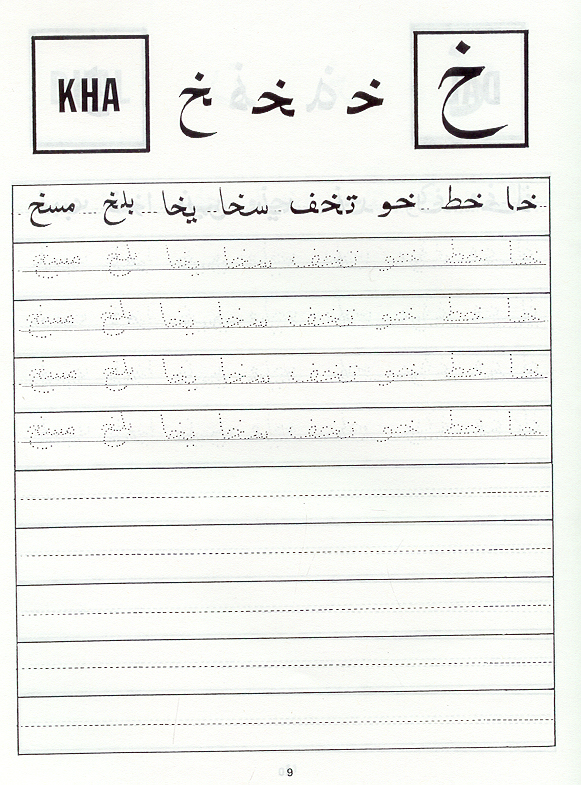 KHA خ خ خ خ
خا خط خو تخف سخا يخا بلخ مسخ
خا خط خو تخف سخا يخا بلخ مسخ
خا خط خو تخف سخا يخا بلخ مسخ
خا خط خو تخف سخا يخا بلخ مسخ
خا خط خو تخف سخا يخا بلخ مسخ
9